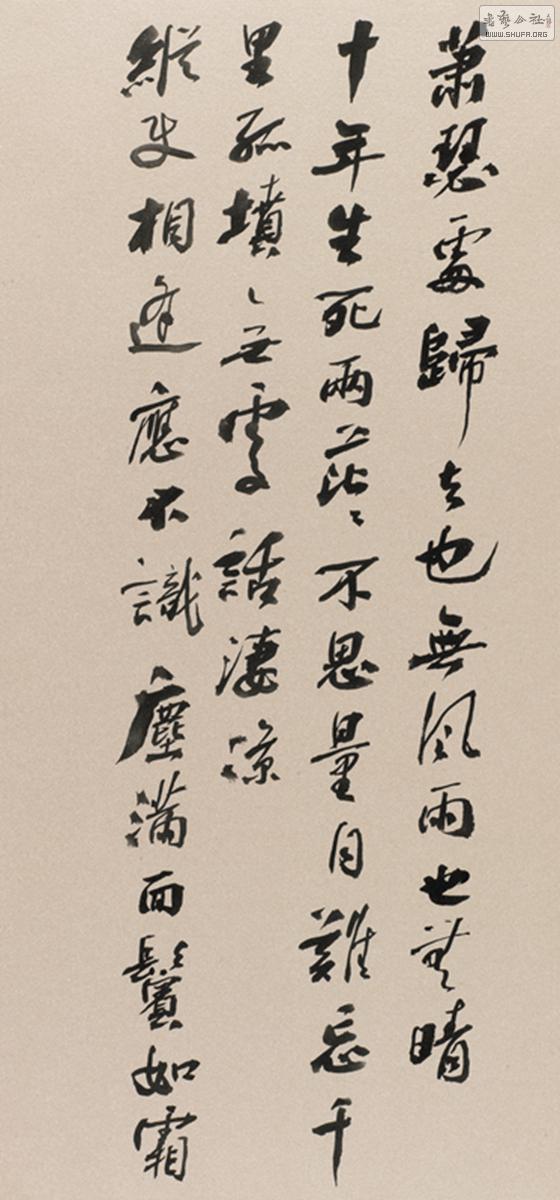 蕭瑟處歸去也無風雨也無晴
十年生死兩茫々不思量自難忘千
里孤墳、無處話淒涼
縱使相逢應不識塵滿面鬢如霜
WWW.SHUFA.ORG